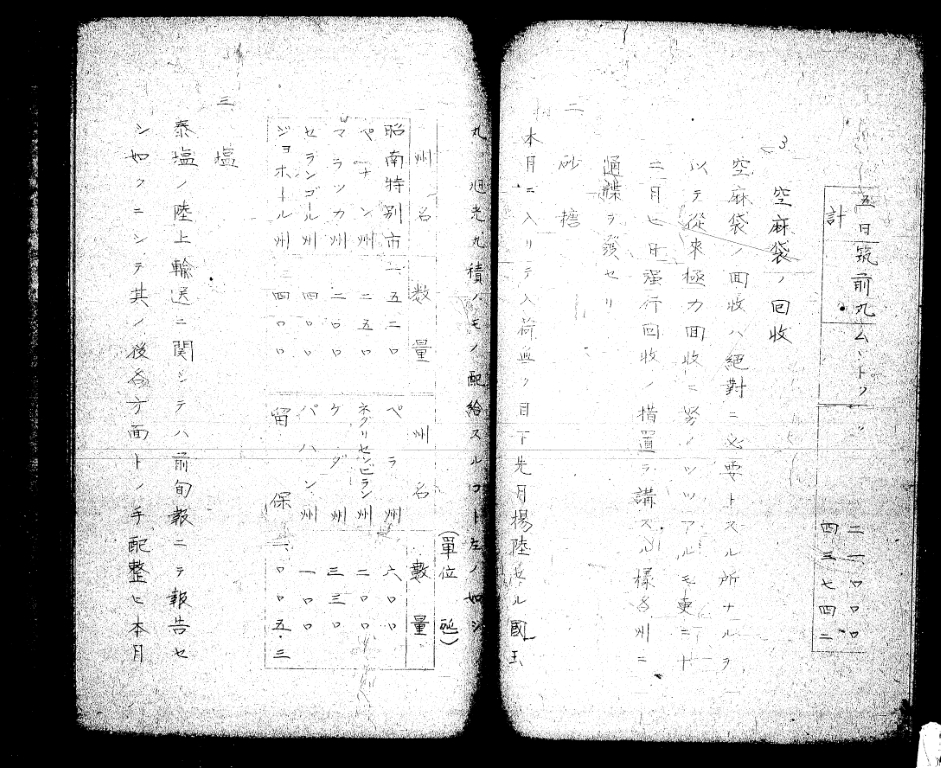 五日筑前丸 ムントク 二一〇〇〇
計 四三七四二
3 空麻袋ノ回收
空麻袋ノ回收ハ絕對ニ必要トスル所ナルヲ
以テ從來極力回收ニ努メツツアルモ更ニ十
二月七日強行回收ノ措置ヲ講スル樣各州ニ
通牒ヲ發セリ
二 砂糖
本月ニ入リテ入荷無ク目下先月揚陸セル國玉
丸 旭光丸積ハモノ配給スルコト左ノ如シ
(單位 瓲)
州名 数量 州名 數量
昭南特別市 一五二〇 ペラ州 六〇〇
ペナン州 二五〇 ネグリセンビラン州 二〇〇
マラツカ州 二〇〇 ケダ州 三三〇
セランゴール州 四〇〇 パハン州 一〇〇
ジヨホール州 二四〇 留保 一〇〇五.三
三 塩
泰塩ノ陸上輸送ニ関シテハ前旬報ニテ報告セ
シ如クニシテ其ノ後各方面トノ手配整ヒ本月